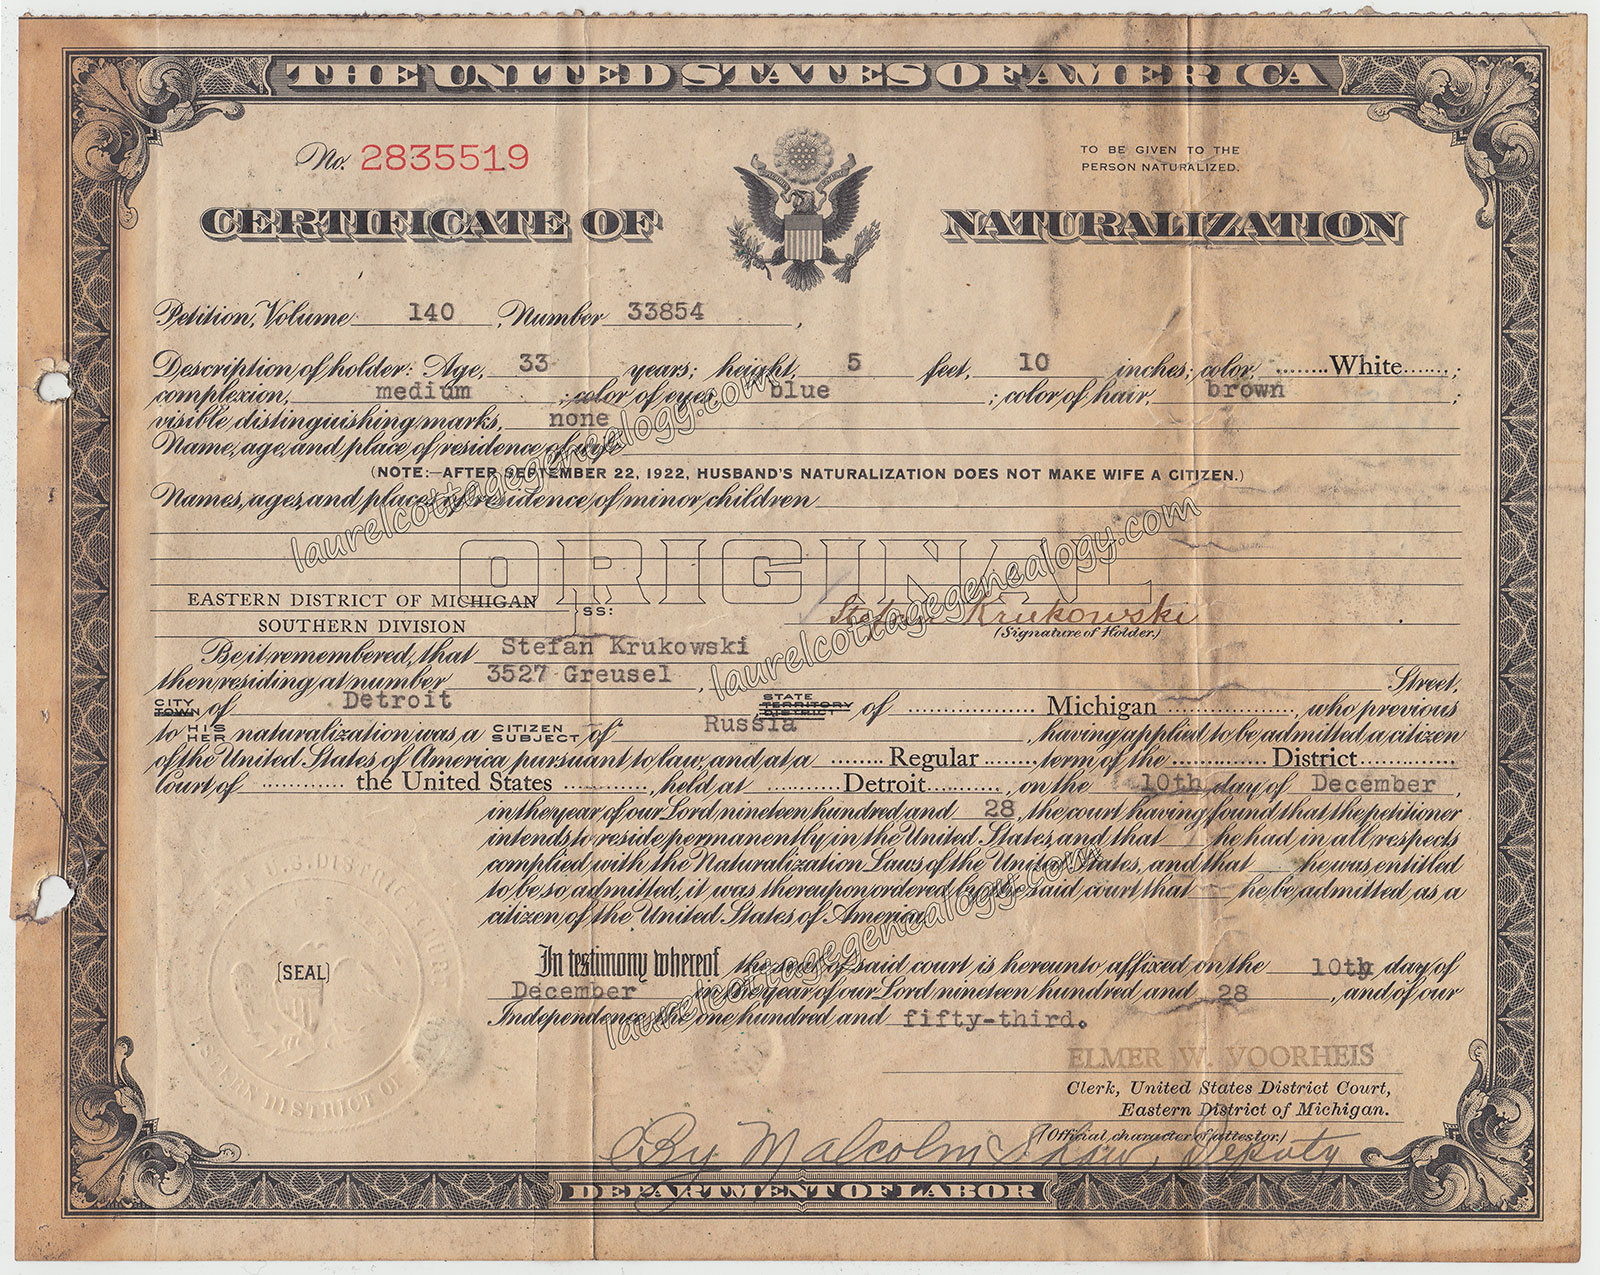 THE UNITED STATES OF AMERICA
No. 2835519
TO BE GIVEN TO THE
PERSON NATURALIZED.
CERTIFICATE OF NATURALIZATION
Petition, Volume 140, Number 33854,
Description of holder: Age, 33 years; height, 5 feet, 10 inches; color, White;
complexion, medium; color of eyes, blue; color of hair, brown;
visible distinguishing marks, none
Name, age, and place of residence of wife
(NOTE:—AFTER SEPTEMBER 22, 1922, HUSBAND'S NATURALIZATION DOES NOT MAKE WIFE A CITIZEN.)
Names, ages, and places of residence of minor children
ORIGINAL
EASTERN DISTRICT OF MICHIGAN
SOUTHERN DIVISION
SS:
Stefan Krukowski
(Signature of Holder.)
Be it remembered, that Stefan Krukowski
then residing at number 3527 Greusel, Street,
CITY TOWN of Detroit STATE TERRITORY DISTRICT of Michigan, who previous
to HIS HER naturalization was a CITIZEN SUBJECT of Russia, having applied to be admitted a citizen
of the United States of America pursuant to law, and at a Regular term of the District
Court of the United States, held at Detroit, on the 10th day of December,
in the year of our Lord nineteen hundred and 28, the court having found that the petitioner
intends to reside permanently in the United States, and that he had in all respects
complied with the Naturalization Laws of the United States, and that he was entitled
to be so admitted, it was thereupon ordered by the said court that he be admitted as a
citizen of the United States of America.
In testimony whereof the seal of said court is hereunto affixed on the 10th day of
December in the year of our Lord nineteen hundred and 28, and of our
Independence the one hundred and fifty-third.
(SEAL)
ELMER W. VOORHEIS
Clerk, United States District Court,
Eastern District of Michigan.
(Official character of attestor.)
By Malcolm Shaw, Deputy
DEPARTMENT OF LABOR
laurelcottagegenealogy.com
laurelcottagegenealogy.com
laurelcottagegenealogy.com